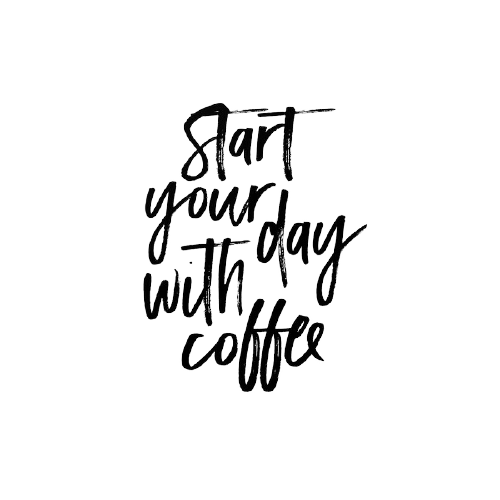 Start
your day
with
coffee